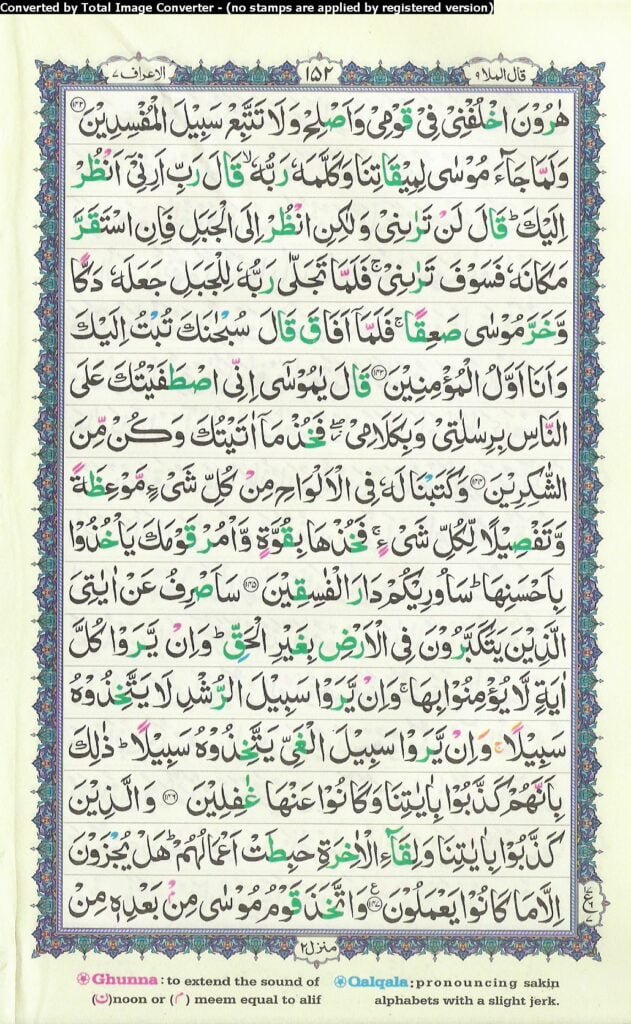 Converted by Total Image Converter - (no stamps are applied by registered version)
قال الملا ٩ ١٥٢ الاعراف ٧
هٰرُوْنَ اخْلُفْنِیْ فِیْ قَوْمِیْ وَاَصْلِحْ وَلَا تَتَّبِعْ سَبِیْلَ الْمُفْسِدِیْنَ ﴿۱۴۲﴾
وَلَمَّا جَآءَ مُوْسٰی لِمِیْقَاتِنَا وَكَلَّمَهٗ رَبُّهٗ ۙ قَالَ رَبِّ اَرِنِیْۤ اَنْظُرْ
اِلَیْكَ ؕ قَالَ لَنْ تَرٰىنِیْ وَلٰكِنِ انْظُرْ اِلَی الْجَبَلِ فَاِنِ اسْتَقَرَّ
مَكَانَهٗ فَسَوْفَ تَرٰىنِیْ ۚ فَلَمَّا تَجَلّٰی رَبُّهٗ لِلْجَبَلِ جَعَلَهٗ دَكًّا
وَّخَرَّ مُوْسٰی صَعِقًا ۚ فَلَمَّاۤ اَفَاقَ قَالَ سُبْحٰنَكَ تُبْتُ اِلَیْكَ
وَاَنَا اَوَّلُ الْمُؤْمِنِیْنَ ﴿۱۴۳﴾ قَالَ یٰمُوْسٰۤی اِنِّی اصْطَفَیْتُكَ عَلَی
النَّاسِ بِرِسٰلٰتِیْ وَبِكَلَامِیْ ۖؗ فَخُذْ مَاۤ اٰتَیْتُكَ وَكُنْ مِّنَ
الشّٰكِرِیْنَ ﴿۱۴۴﴾ وَكَتَبْنَا لَهٗ فِی الْاَلْوَاحِ مِنْ كُلِّ شَیْءٍ مَّوْعِظَةً
وَّتَفْصِیْلًا لِّكُلِّ شَیْءٍ ۚ فَخُذْهَا بِقُوَّةٍ وَّاْمُرْ قَوْمَكَ یَاْخُذُوْا
بِاَحْسَنِهَا ؕ سَاُورِیْكُمْ دَارَ الْفٰسِقِیْنَ ﴿۱۴۵﴾ سَاَصْرِفُ عَنْ اٰیٰتِیَ
الَّذِیْنَ یَتَكَبَّرُوْنَ فِی الْاَرْضِ بِغَیْرِ الْحَقِّ ؕ وَاِنْ یَّرَوْا كُلَّ
اٰیَةٍ لَّا یُؤْمِنُوْا بِهَا ۚ وَاِنْ یَّرَوْا سَبِیْلَ الرُّشْدِ لَا یَتَّخِذُوْهُ
سَبِیْلًا ۚ وَاِنْ یَّرَوْا سَبِیْلَ الْغَیِّ یَتَّخِذُوْهُ سَبِیْلًا ؕ ذٰلِكَ
بِاَنَّهُمْ كَذَّبُوْا بِاٰیٰتِنَا وَكَانُوْا عَنْهَا غٰفِلِیْنَ ﴿۱۴۶﴾ وَالَّذِیْنَ
كَذَّبُوْا بِاٰیٰتِنَا وَلِقَآءِ الْاٰخِرَةِ حَبِطَتْ اَعْمَالُهُمْ ؕ هَلْ یُجْزَوْنَ
اِلَّا مَا كَانُوْا یَعْمَلُوْنَ ﴿۱۴۷﴾ ع وَاتَّخَذَ قَوْمُ مُوْسٰی مِنْۢ بَعْدِهٖ مِنْ
منزل ٢
Ghunna : to extend the sound of (ن) noon or (م) meem equal to alif
Qalqala : pronouncing sakin alphabets with a slight jerk.